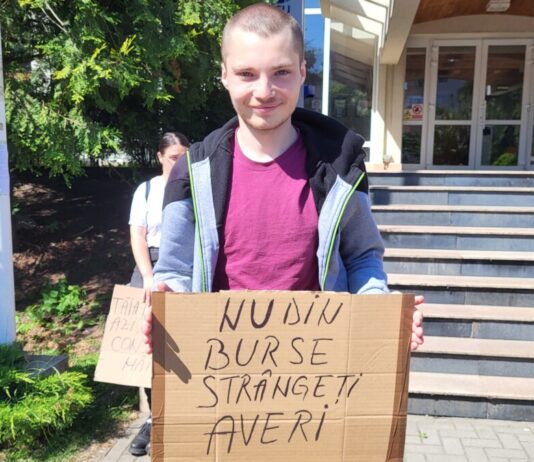 NU DIN
BURSE
STRÂNGEȚI
AVERI
AZI
CON